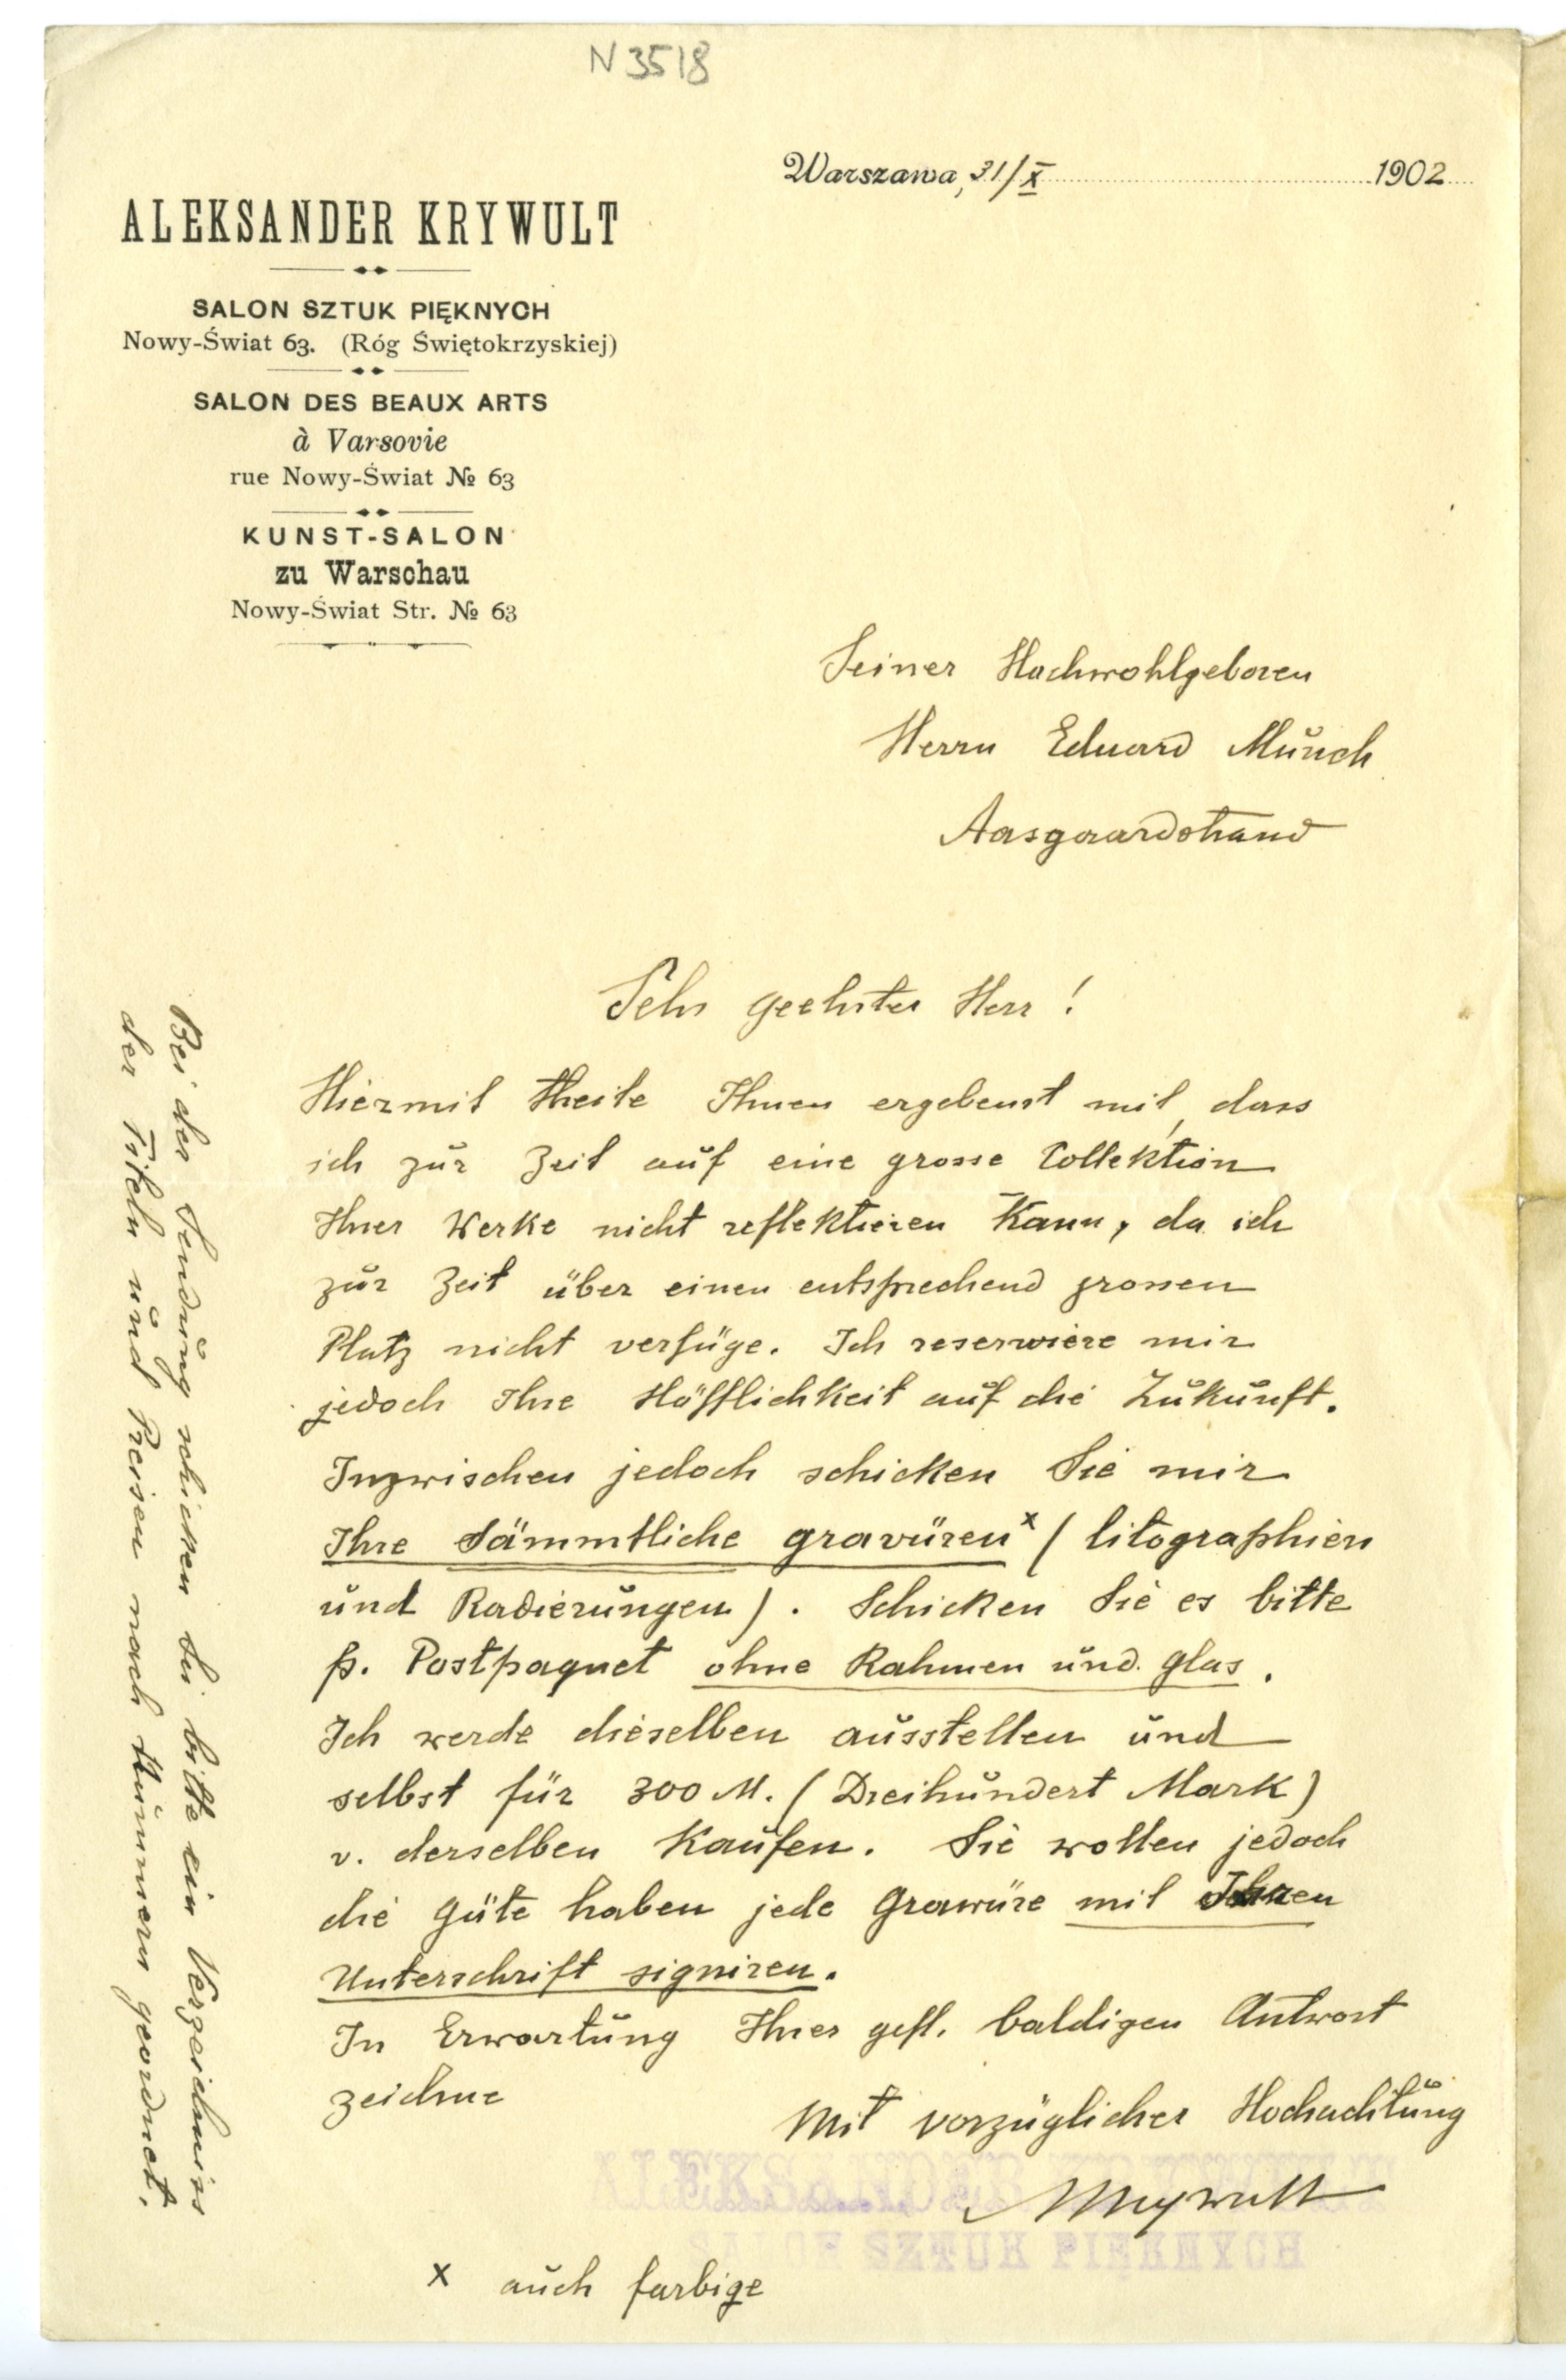 N 3518
Warszawa, 31/X 1902
ALEKSANDER KRYWULT
SALON SZTUK PIĘKNYCH
Nowy-Świat 63. (Róg Świętokrzyskiej)
SALON DES BEAUX ARTS
à Varsovie
rue Nowy-Świat № 63
KUNST-SALON
zu Warschau
Nowy-Świat Str. № 63
Seiner Hochwohlgeboren
Herrn Eduard Munch
Aasgaardstrand
Sehr geehrter Herr!
Hiermit theile Ihnen ergebenst mit, dass
ich zur Zeit auf eine grosse Collektion
Ihrer Werke nicht reflektieren kann, da ich
zur Zeit über einen entsprechend grossen
Platz nicht verfüge. Ich reserwiere mir
jedoch Ihre Höfflichkeit auf die Zukunft.
Inzwischen jedoch schicken Sie mir
Ihre Sämmtliche gravüren x (litographien
und Radierungen). Schicken Sie es bitte
p. Postpaquet ohne Rahmen und glas.
Ich werde dieselben ausstellen und
selbst für 300 M. (Dreihundert Mark)
v. derselben kaufen. Sie wollen jedoch
die Güte haben jede Grawüre mit Ihren
Unterschrift signiren.
In Erwartung Ihrer gefl. baldigen Antwort
zeichne
Mit vorzüglicher Hochachtung
AKrywult
ALEKSANDER KRYWULT
SALON SZTUK PIĘKNYCH
x auch farbige
Bei der Sendung schicken Sie bitte ein Verzeichniss
der Titeln und Preisen nach Nummern geordnet.